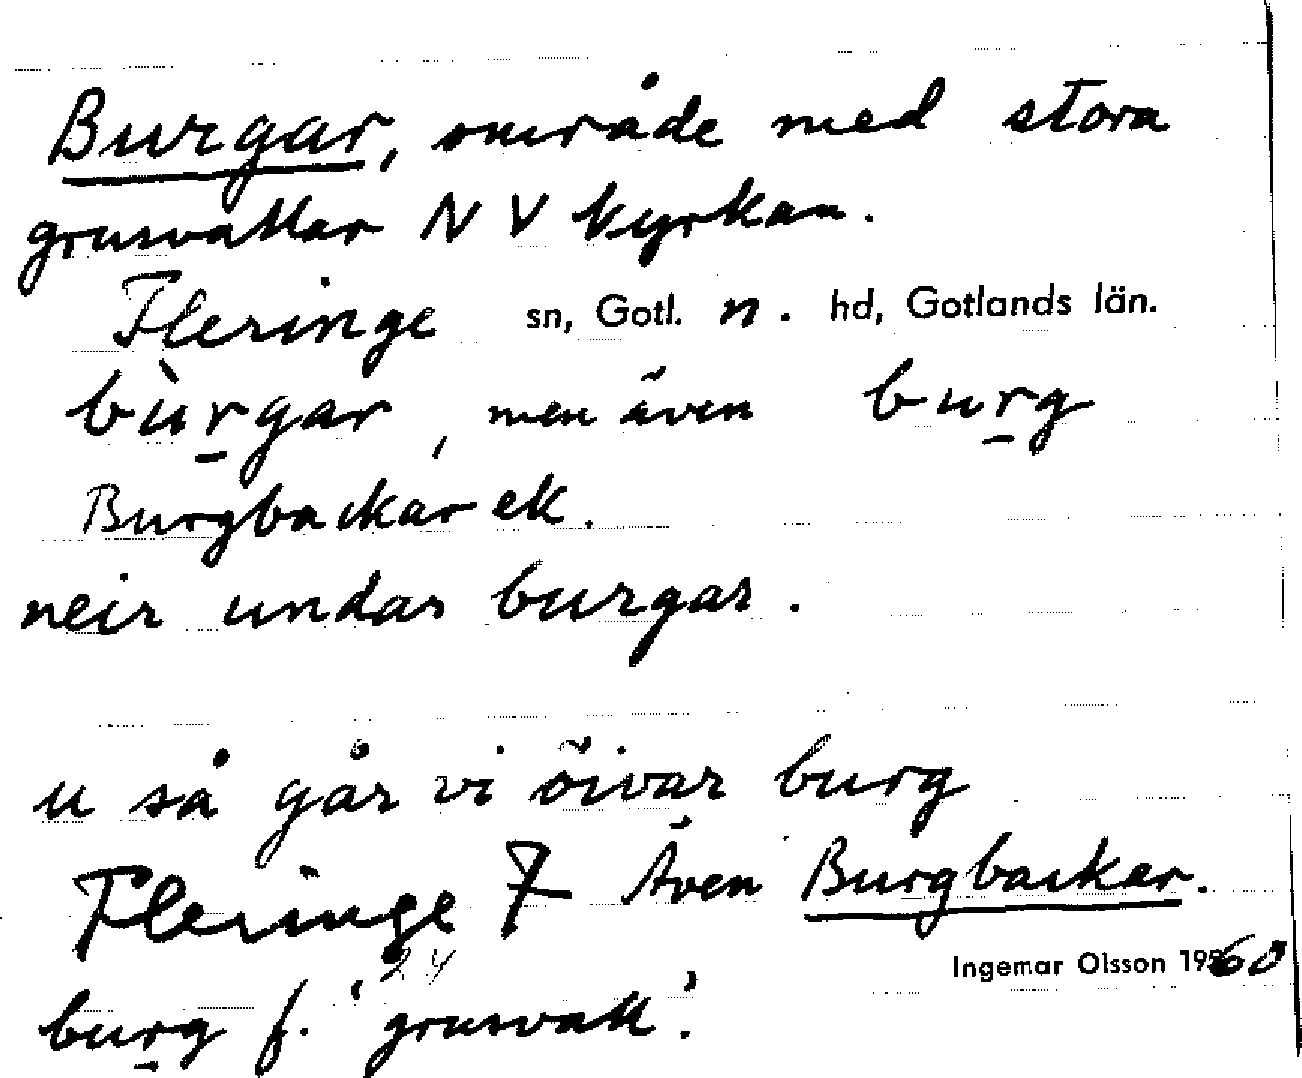 Burgar, område med stora
grusvallar NV kyrkan.
Fleringe sn, Gotl. n. hd, Gotlands län.
bùrgar, men även burg
Burgbackar ek.
neir undar burgar.
u så går vi öivar burg
Fleringe 7 Även Burgbackar.
24
Ingemar Olsson 1960
burg f. 'grusvall'.